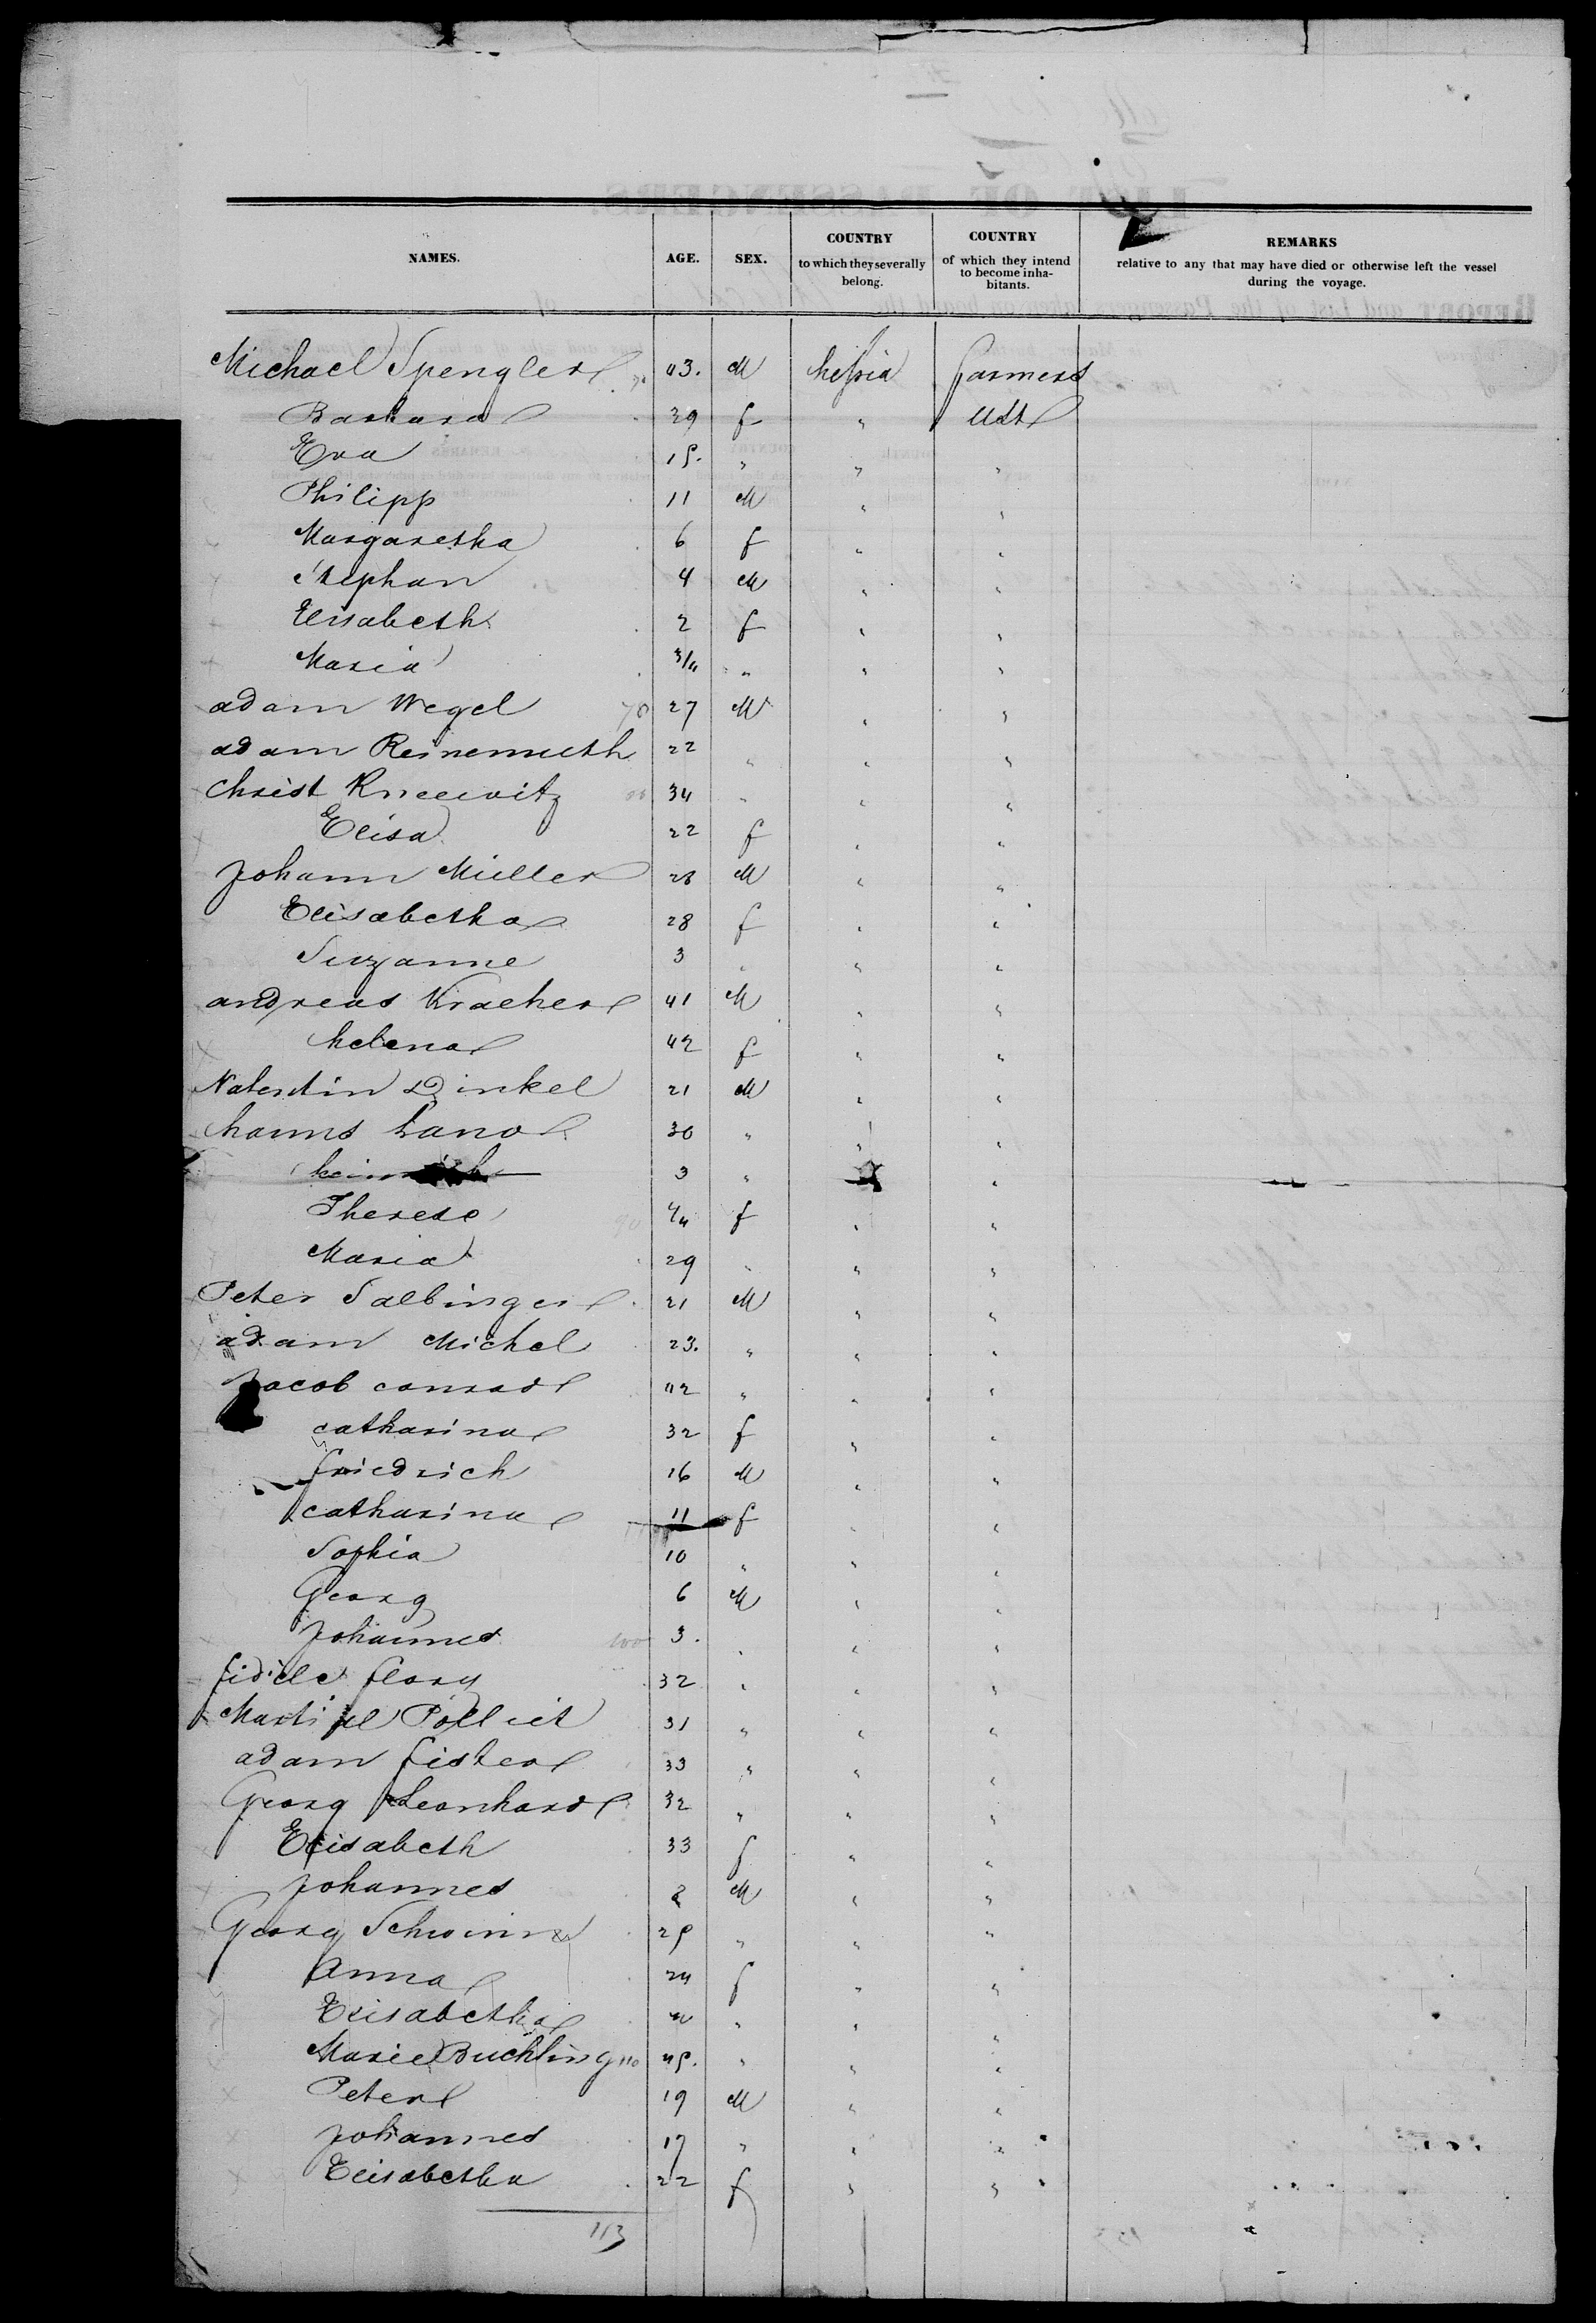 NAMES. AGE. SEX. COUNTRY to which they severally belong. COUNTRY of which they intend to become inhabitants. REMARKS relative to any that may have died or otherwise left the vessel during the voyage.
Michael Spengler 43. M hessia farmers
Barbara 39 f " USt
Eva 15. " " "
Philipp 11 M " "
Margaretha 6 f " "
Stephan 4 M " "
Elisabeth 2 f " "
Maria 3/4 " " "
adam Wegel 70 27 M " "
adam Reinemuth 22 " " "
Christ 34 " " "
Elisa 22 f " "
Johann Müller 28 M " "
Elisabetha 28 f " "
Suzanne 3 " " "
andreas Kraeher 41 M " "
helena 42 f " "
Valentin Dinkel 21 M " "
hanns 30 " " "
heinrich 3 " "
Therese 90 1/4 f " "
Maria 29 " " "
Peter Salbinger 21 M " "
adam Michel 23. " " "
Jacob conrad 42 " " "
catharina 32 f " "
friedrich 16 M " "
catharina 11 f " "
Sophia 10 " " "
Georg 6 M " "
Johannes 100 3. " " "
fidele flory 32 " " "
31 " " "
adam fister 33 " " "
Georg Leonhard 32 " " "
Elisabeth 33 f " "
Johannes 2 M " "
Georg Schwinn 25 " " "
Anna 24 f " "
Elisabetha " " "
Marie Buchling 110 45. " " "
Peter 19 M " "
Johannes 17 " " "
Elisabetha 22 f " "
113